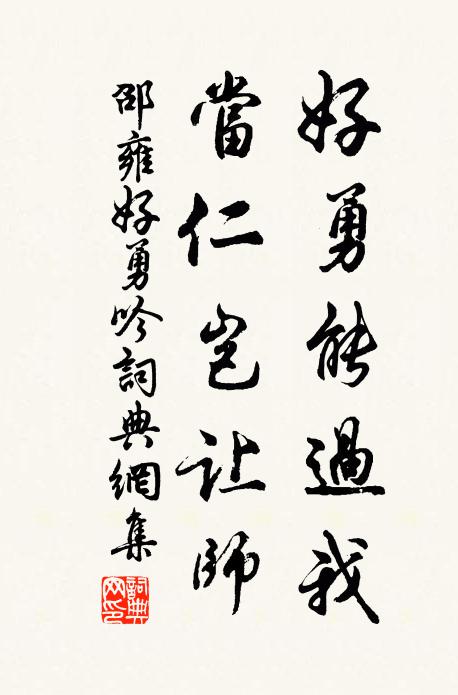 好勇能過我
當仁岂让師
邵雍好勇吟詞典網集
詞典网印